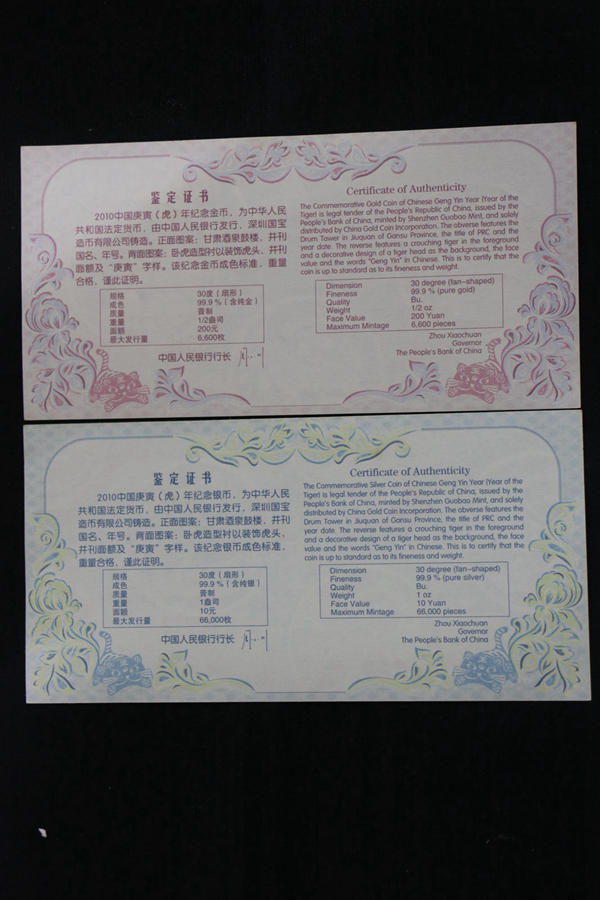 鉴定证书
2010中国庚寅（虎）年纪念金币，为中华人民
共和国法定货币，由中国人民银行发行，深圳国宝
造币有限公司铸造。正面图案：甘肃酒泉鼓楼，并刊
国名、年号。背面图案：卧虎造型衬以装饰虎头，并刊
面额及“庚寅”字样。该纪念金币成色标准，重量
合格，谨此证明。
规格 30度（扇形）
成色 99.9％（含纯金）
质量 普制
重量 1/2盎司
面额 200元
最大发行量 6,600枚
中国人民银行行长
Certificate of Authenticity
The Commemorative Gold Coin of Chinese Geng Yin Year (Year of the
Tiger) is legal tender of the People's Republic of China, issued by the
People's Bank of China, minted by Shenzhen Guobao Mint, and solely
distributed by China Gold Coin Incorporation. The obverse features the
Drum Tower in Jiuquan of Gansu Province, the title of PRC and the
year date. The reverse features a crouching tiger in the foreground
and a decorative design of a tiger head as the background, the face
value and the words "Geng Yin" in Chinese. This is to certify that the
coin is up to standard as to its fineness and weight.
Dimension 30 degree (fan-shaped)
Fineness 99.9 % (pure gold)
Quality Bu.
Weight 1/2 oz
Face Value 200 Yuan
Maximum Mintage 6,600 pieces
Zhou Xiaochuan
Governor
The People's Bank of China
鉴定证书
2010中国庚寅（虎）年纪念银币，为中华人民
共和国法定货币，由中国人民银行发行，深圳国宝
造币有限公司铸造。正面图案：甘肃酒泉鼓楼，并刊
国名、年号。背面图案：卧虎造型衬以装饰虎头，
并刊面额及“庚寅”字样。该纪念银币成色标准，
重量合格，谨此证明。
规格 30度（扇形）
成色 99.9％（含纯银）
质量 普制
重量 1盎司
面额 10元
最大发行量 66,000枚
中国人民银行行长
Certificate of Authenticity
The Commemorative Silver Coin of Chinese Geng Yin Year (Year of the
Tiger) is legal tender of the People's Republic of China, issued by the
People's Bank of China, minted by Shenzhen Guobao Mint, and solely
distributed by China Gold Coin Incorporation. The obverse features the
Drum Tower in Jiuquan of Gansu Province, the title of PRC and the
year date. The reverse features a crouching tiger in the foreground
and a decorative design of a tiger head as the background, the face
value and the words "Geng Yin" in Chinese. This is to certify that the
coin is up to standard as to its fineness and weight.
Dimension 30 degree (fan-shaped)
Fineness 99.9 % (pure silver)
Quality Bu.
Weight 1 oz
Face Value 10 Yuan
Maximum Mintage 66,000 pieces
Zhou Xiaochuan
Governor
The People's Bank of China